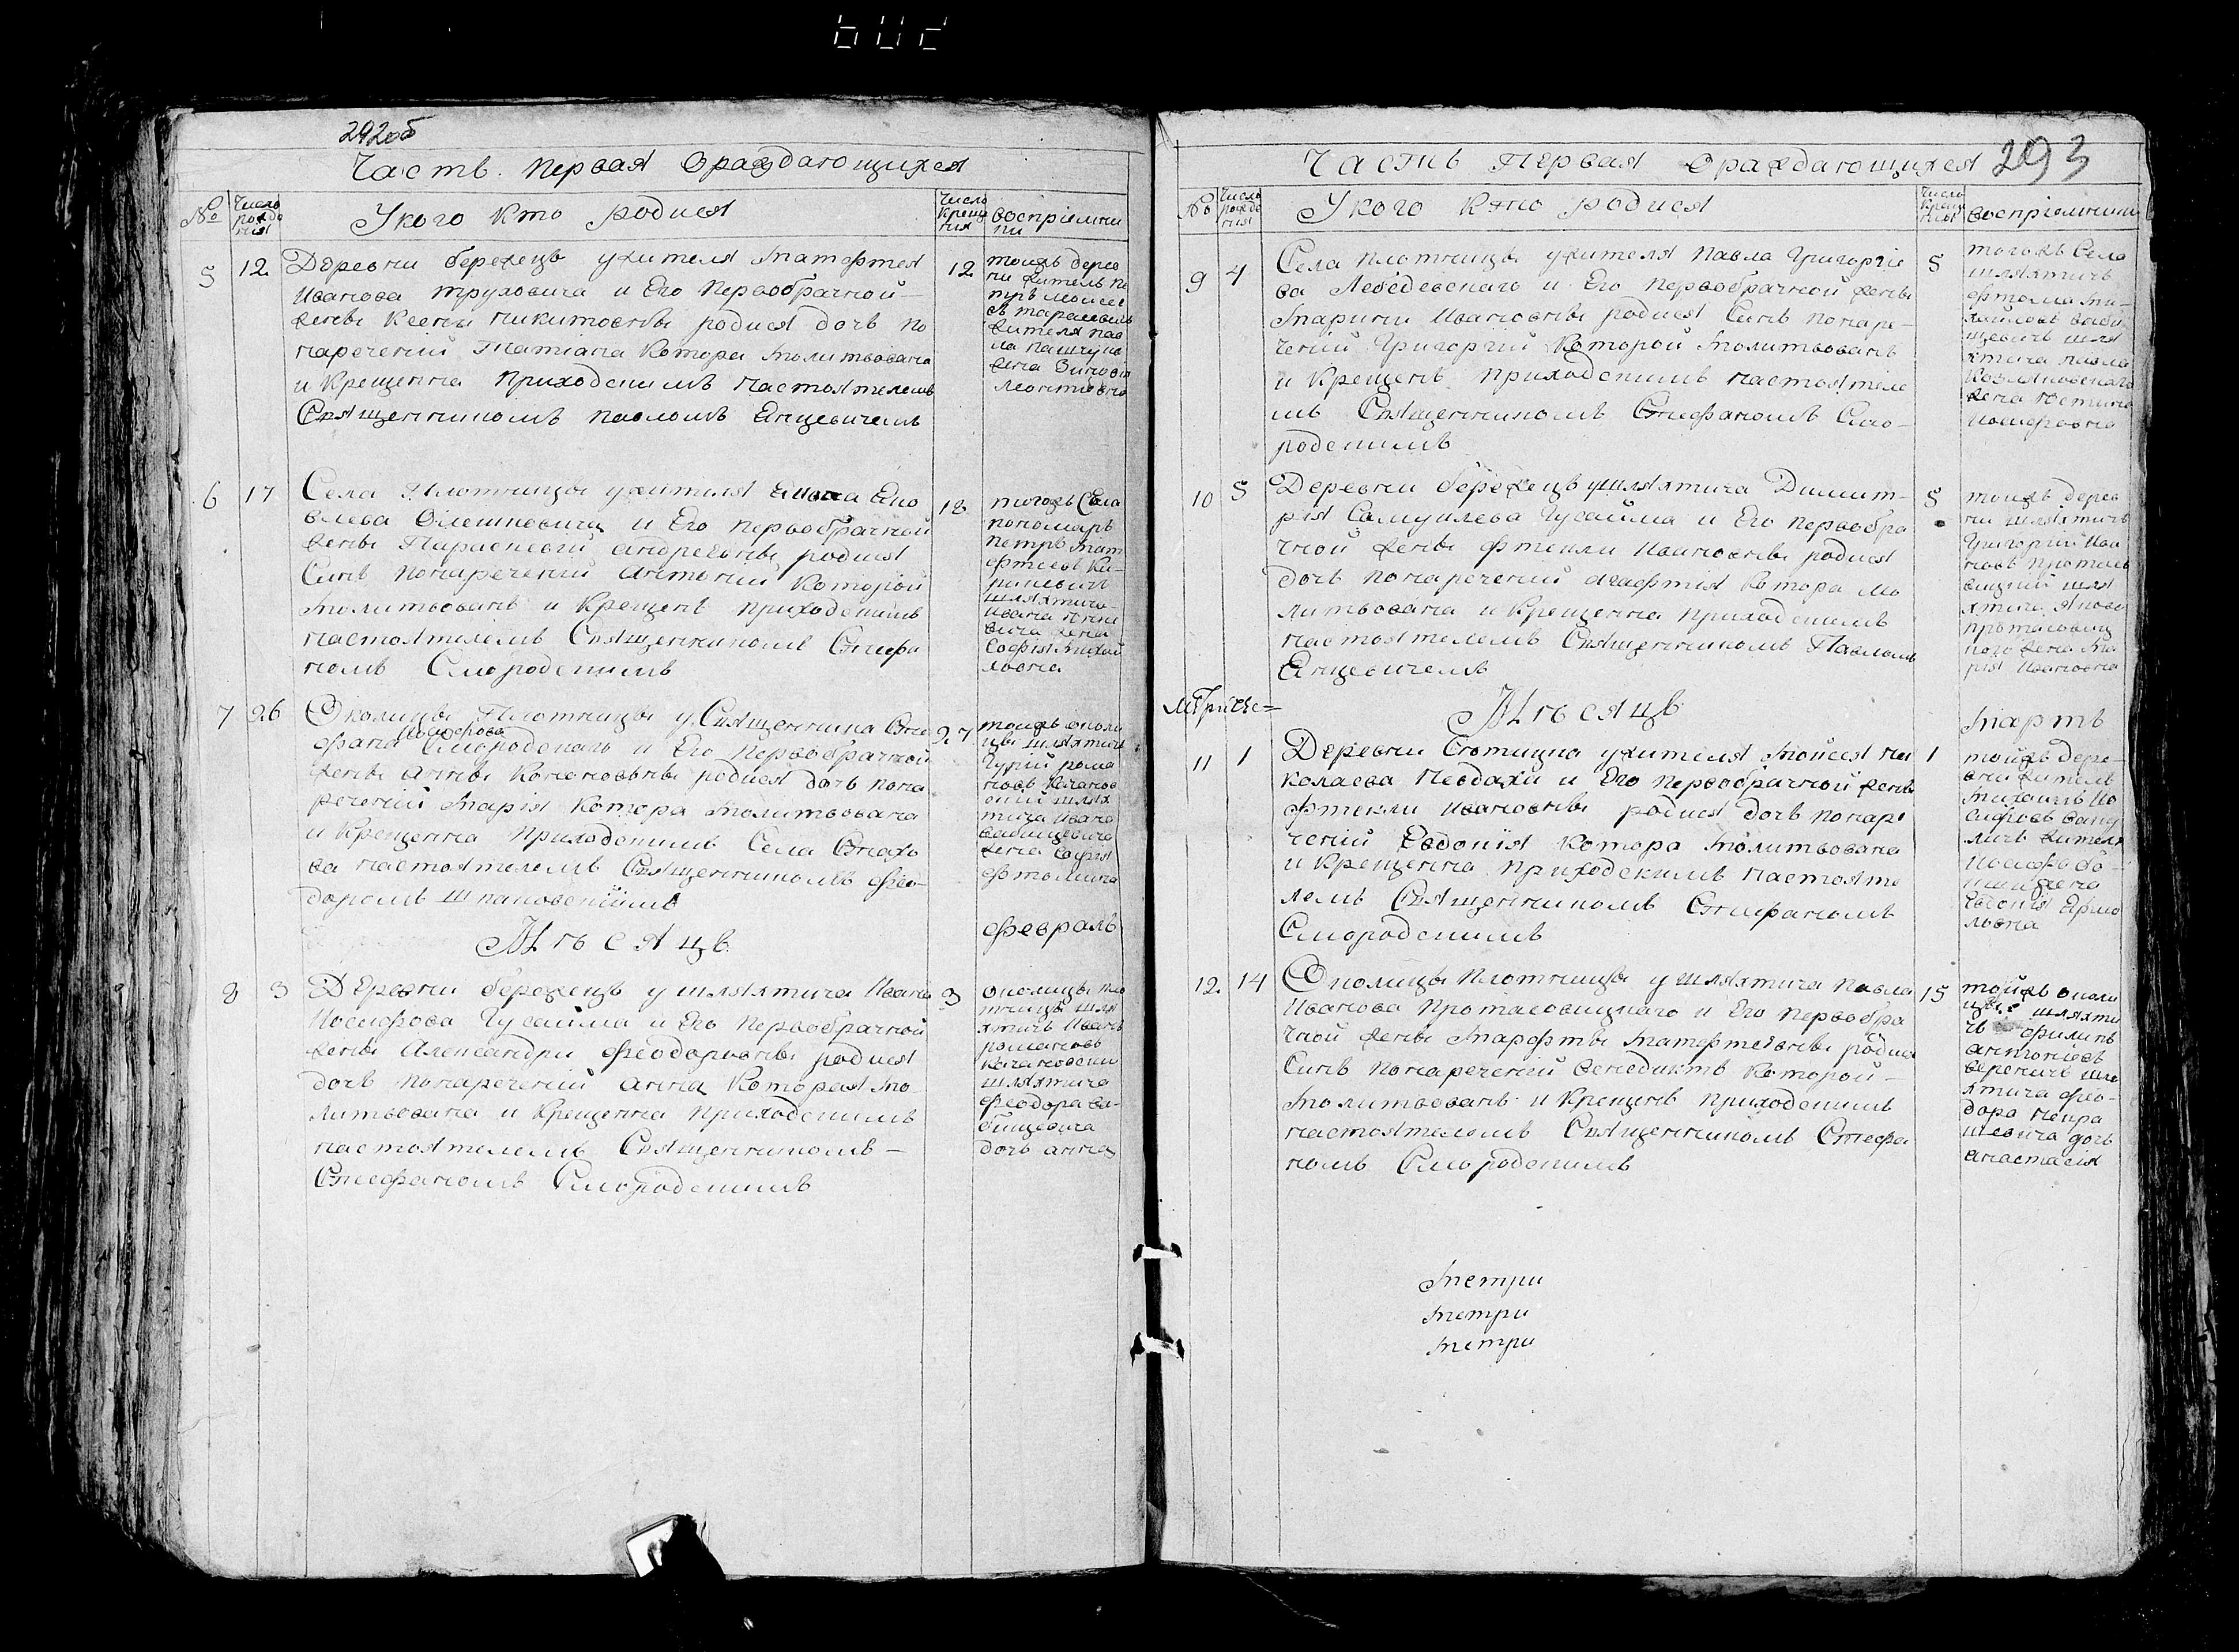 292об
Часть Первая ораждающихся
№
Число рожде ния
У кого кто родися
Число креще ния
восприемни ки
5
12
Деревни бережецъ ужителя Матфтея
Иванова труховича и Его Первобрачной
жены Ксены Никитовны родися дочь по
наречений Татіана котора Молитвована
и Крещенна Приходскимъ Настоятелемъ
Священникомъ Павломъ Янцевичемъ
12
тоижъ дерев
ни житель Пе
тръ Моисее
въ
жителя пав
ла
жена Зиновия
Леонтиевна
6
17
Села Плотницы ужителя Якова Яко
влева Олешкевича и Его Первобрачной
жены Параскевій андреевны родися
Синъ Понаречений антоний Которой
Молитвованъ и Крещенъ приходскимъ
настоятелемъ Священникомъ Стефа
номъ Смородскимъ
18
тогожъ Села
пономаръ
Петръ Мат
фтеевъ Ки-
рикевичъ
шляхтича
Ивана
жена
Софія Михай
ловна
7
26
Околицы Плотницы у Священника Сте
фана Иосифова Смородскаго и Его Первобрачной
жены анны Кононовны родися дочь пона
речений Марія Котора Молитвована
и Крещенна Приходскимъ Села Стахо
ва настоятелемъ Священникомъ Фео-
доромъ Шпаковскимъ
27
тоижъ околи
цы шляхтичъ
Гурий рома
новъ Качанов
ский шлях
тича Ивана
жена Софія
фтомина
Мѣсяцъ
февраль
8
3
Деревни бережецъ у шляхтича Ивана
Иосифова Гусайма и Его Первобрачной
жены Александри Феодоровны родися
дочь Понаречений анна Которая Мо-
литвована и Крещенна Приходскимъ
настоятелемъ Священникомъ –
Стефаномъ Смородскимъ
3
околицы пло
тницы шля
хтичъ Иванъ
романовъ
Качановски
шляхтича
Феодора ва-
бищевича
дочь анна
293
Часть Первая ораждающихся
№
Число рожде ния
У кого Кто родися
Число креще ния
восприемники
9
4
Села Плотницы ужителя Павла Григорие
ва Лебедевскаго и Его Первобрачной жены
Марини Ивановны родися Синъ понаре-
чений Григорий Которой Молитвованъ
и Крещенъ Приходскимъ настоятеле
мъ Священникомъ Стефаномъ Смо-
родскимъ
5
тогожъ Села
шляхтичъ
фтома Ми-
хайловъ ваби
щевичъ шля
хтича
жена
Иосифовна
10
5
Деревни бережецъ ушляхтича Димит-
рія Самуилева Гусайма и Его Первобра
чной жены фтекли Ивановны родися
дочь Понаречений агафтія Котора Мо
литвована и Крещенна Приходскимъ
настоятелемъ Священникомъ Павломъ
Янцевичемъ
5
тоижъ дерев
ни шляхтичъ
Григорий Ива
новъ протасо
вицкий шля
хтича Якова
протасовиц
кого жена Ма
рия Ивановна
Мѣсяцъ
Мартъ
11
1
Деревни Стотична ужителя Мойсея Ни
колаева Невдахи и Его Первобрачной жены
фтекли Ивановны родися дочь Понаре
чений Евдокія Котора Молитвована
и Крещенна Приходскимъ настояте
лемъ Священникомъ Стефаномъ
Смородскимъ
1
тойжъ дере-
вни житель
Михаилъ Ио
сифовъ
житель
жена
Евдокія
12
14
Околицы Плотницы у шляхтича Павла
Иванова Протасовицкаго и Его Первобра
чной жены Марфты Матфтеевны родися
Синъ Понаречений Венедиктъ Которой –
Молитвованъ и Крещенъ приходскимъ
настоятелемъ Священникомъ Стефа
номъ Смородскимъ
15
тойжъ околи
цы шляхти
чъ филипъ
антониевъ
Веренич шля
хтича Фео-
дора
дочь
анастасія
Метри
Метри
Метри